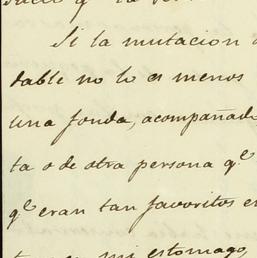 Si la mutacion
dable no lo es menos
una fonda, acompañad
ta o de otra persona qe
qe eran tan favoritos en
mi estomago,